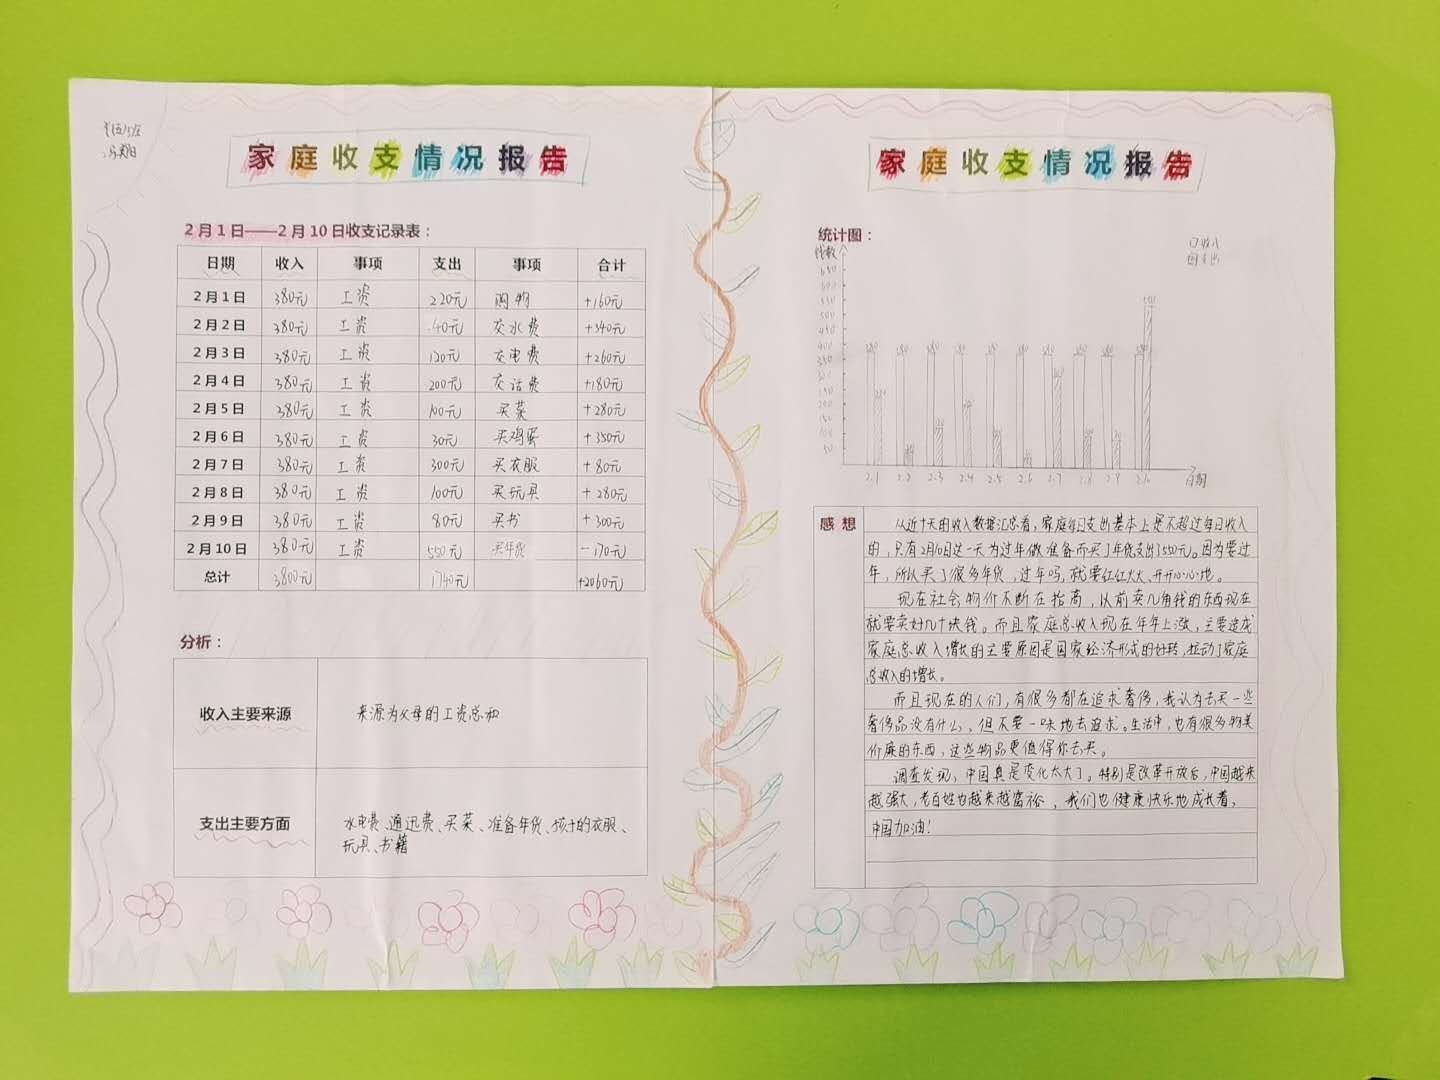 家庭收支情况报告
2月1日——2月10日收支记录表：
日期 收入 事项 支出 事项 合计
2月1日 380元 工资 220元 购物 +160元
2月2日 380元 工资 40元 交水费 +340元
2月3日 380元 工资 120元 交电费 +260元
2月4日 380元 工资 200元 交话费 +180元
2月5日 380元 工资 100元 买菜 +280元
2月6日 380元 工资 30元 买鸡蛋 +350元
2月7日 380元 工资 300元 买衣服 +80元
2月8日 380元 工资 100元 买玩具 +280元
2月9日 380元 工资 80元 买书 +300元
2月10日 380元 工资 550元 买年货 -170元
总计 3800元 1740元 +2060元
分析：
收入主要来源 来源为父母的工资总和
支出主要方面 水电费、通迅费、买菜、准备年货、孩子的衣服、
玩具、书籍
家庭收支情况报告
统计图：
钱数
收入
支出
650
600
550
500
450
400
350
200
150
100
50
2.1 2.2 2.3 2.4 2.5 2.6 2.7 2.8 2.9 2.10 日期
感想
从近十天的收入数据汇总看，家庭每日支出基本上是不超过每日收入
的，只有2月10日这一天为过年做准备而买了年货支出了550元。因为要过
年，所以买了很多年货，过年吗，就要红红火火、开开心心地。
现在社会物价不断在抬高，以前卖几角钱的东西现在
就要卖好几十块钱。而且家庭总收入现在年年上涨，主要造成
家庭总收入增长的主要原因是国家经济形成的好转，拉动了家庭
总收入的增长。
而且现在的人们，有很多都在追求奢侈，我认为去买一些
奢侈品没有什么，但不要一味地去追求。生活中，也有很多物美
价廉的东西，这些物品更值得你去买。
调查发现，中国真是变化太大了。特别是改革开放后，中国越来
越强大，老百姓也越来越富裕，我们也健康快乐地成长着，
中国加油！